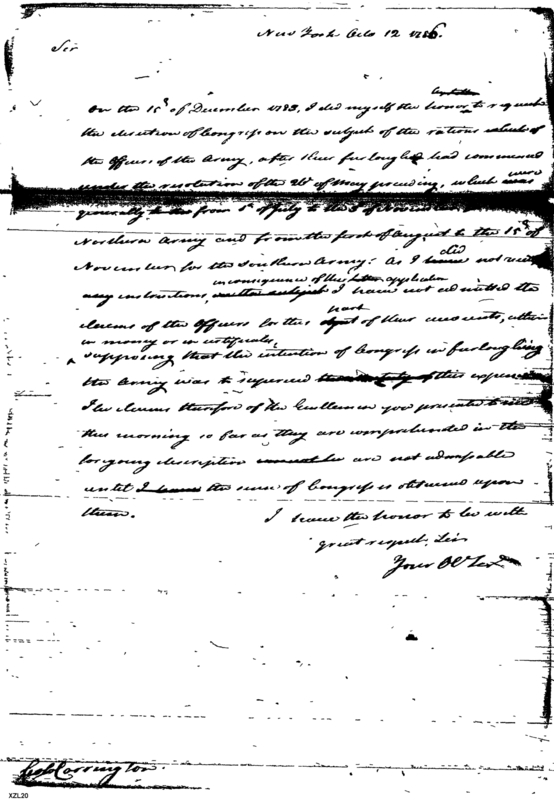 New York Octo 12 1786.
Sir
On the 15th of December 1783, I did myself the honor to request
the direction of Congress on the subject of the rations
the Officers of the Army, after their furlough had commenced
under the resolution of the 26th of May preceding, which were
generally from 1st of July to the 3d of November
Northern Army and from the first of August to the 15th of
November for the Southern Army: As I did not
any instructions, in consequence of this application I have not admitted the
claims of the Officers for this part of their accounts, either
in money or in certificates,
supposing that the intention of Congress in furloughing
the Army was to supersede this expence
The claims therefore of the Gentlemen you presented to me
this morning so far as they are comprehended in the
foregoing description are not admissable
until the sense of Congress is obtained upon
them.
I have the honor to be with
great respect, Sir
Your Ob Servt
Col Carrington.
XZL20